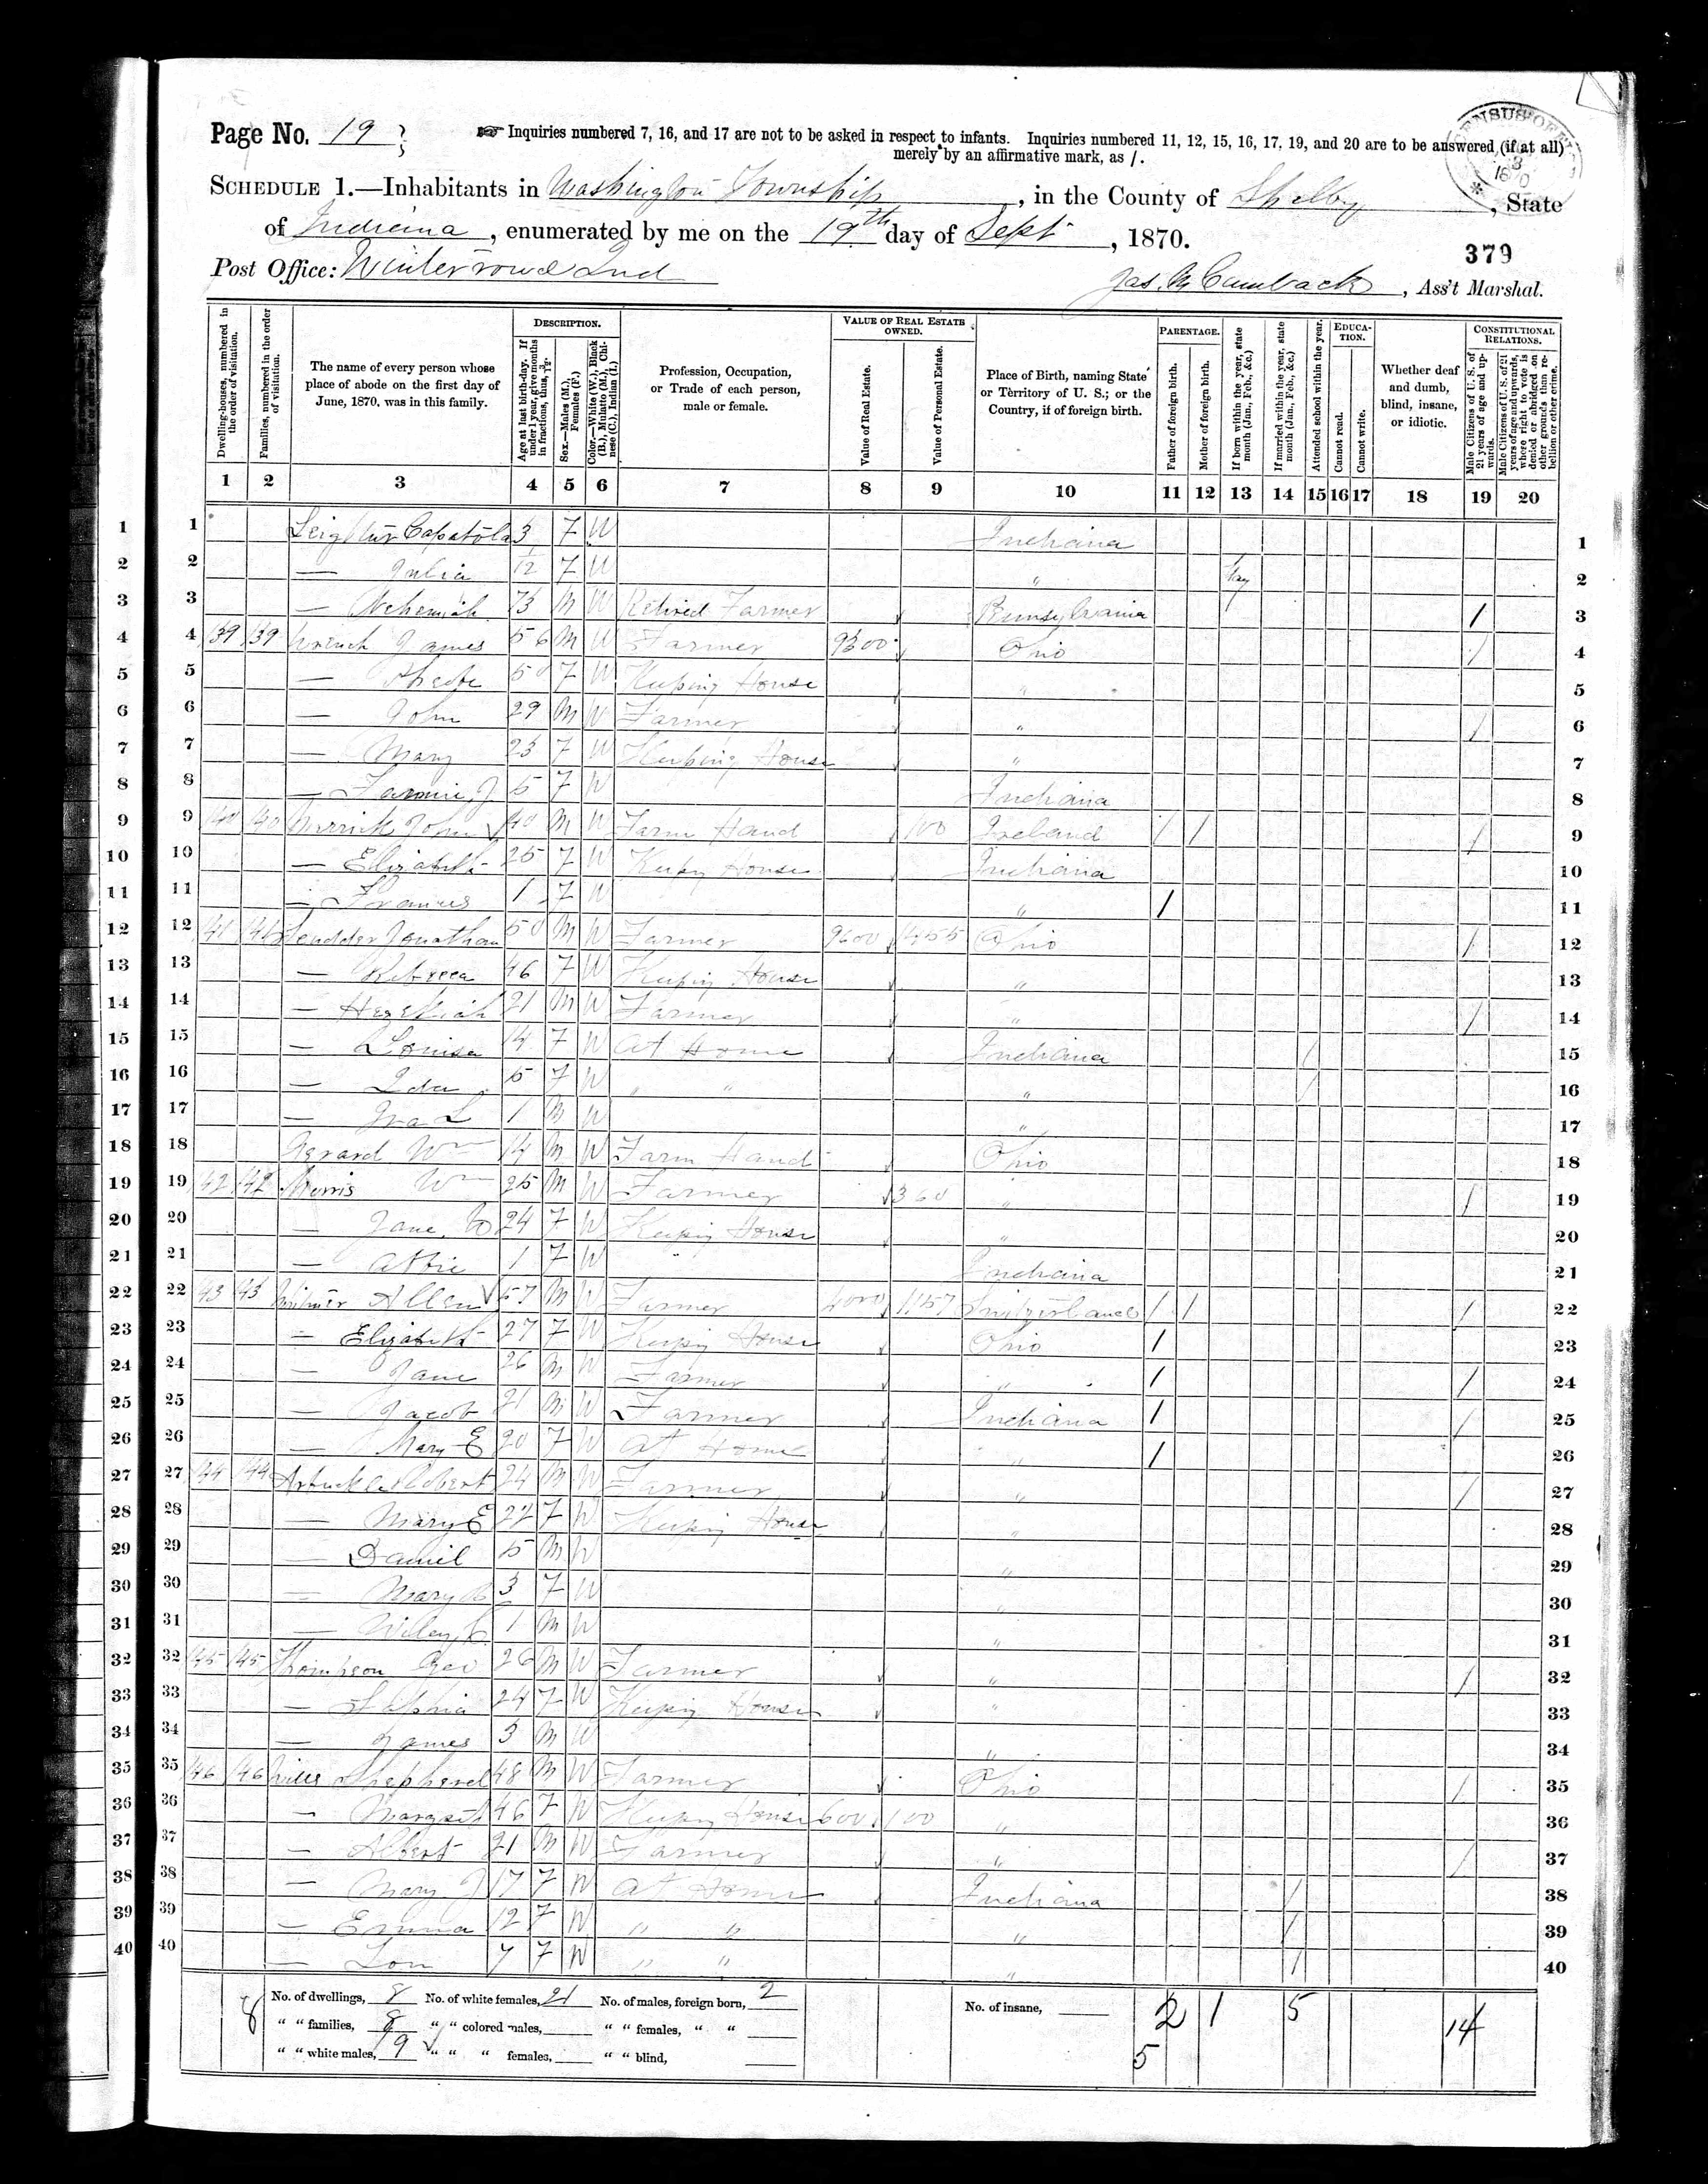 Page No. 19
Inquiries numbered 7, 16, and 17 are not to be asked in respect to infants. Inquiries numbered 11, 12, 15, 16, 17, 19, and 20 are to be answered (if at all)
merely by an affirmative mark, as /.
SCHEDULE 1.—Inhabitants in Washington Township, in the County of Shelby, State
of Indiana, enumerated by me on the 19th day of Sept, 1870.
379
Post Office: Winterrowd Ind
Jas. Cumback, Ass't Marshal.
Dwelling-houses, numbered in the order of visitation.
Families, numbered in the order of visitation.
The name of every person whose place of abode on the first day of June, 1870, was in this family.
DESCRIPTION.
Age at last birth-day. If under 1 year, give months in fractions, thus, 3/12.
Sex.—Males (M.), Females (F.)
Color.—White (W.), Black (B.), Mulatto (M.), Chinese (C.), Indian (I.)
Profession, Occupation, or Trade of each person, male or female.
VALUE OF REAL ESTATE OWNED.
Value of Real Estate.
Value of Personal Estate.
Place of Birth, naming State or Territory of U. S.; or the Country, if of foreign birth.
PARENTAGE.
Father of foreign birth.
Mother of foreign birth.
If born within the year, state month (Jan., Feb., &c.)
If married within the year, state month (Jan., Feb., &c.)
Attended school within the year.
EDUCATION.
Cannot read.
Cannot write.
Whether deaf and dumb, blind, insane, or idiotic.
CONSTITUTIONAL RELATIONS.
Male Citizens of U. S. of 21 years of age and upwards.
Male Citizens of U. S. of 21 years of age and upwards, where right to vote is denied or abridged on other grounds than rebellion or other crime.
1 2 3 4 5 6 7 8 9 10 11 12 13 14 15 16 17 18 19 20
1 Capatola 3 F W Indiana 1
2 — Julia 1/12 F W " May 2
3 — Nehemiah 73 M W Retired Farmer Pennsylvania / 3
4 139 139 James 56 M W Farmer 9300 Ohio / 4
5 — Phebe 50 F W Keeping House " 5
6 — John 29 M W Farmer " / 6
7 — Mary 23 F W Keeping House " 7
8 — Fannie J 5 F W Indiana 8
9 140 140 Merrick John 40 M W Farm Hand 100 Ireland / / / 9
10 — Elizabeth 25 F W Keepg House Indiana 10
11 — Frances 1 F W " / 11
12 141 141 Scudder Jonathan 50 M W Farmer 9600 1455 Ohio / 12
13 — Rebecca 46 F W Keepig House " 13
14 — Hezekiah 21 M W Farmer " / 14
15 — Louisa 14 F W At Home Indiana / 15
16 — Ida 5 F W " " " / 16
17 — Ira L 1 M W " 17
18 Gerard Wm 14 M W Farm Hand Ohio 18
19 142 142 Morris Wm 25 M W Farmer 360 " / 19
20 — Jane 24 F W Keepig House " 20
21 — Abbie 1 F W " Indiana 21
22 143 143 Allen 57 M W Farmer 4000 1,157 Switzerland / / / 22
23 — Elizabeth 27 F W Keepig House Ohio / 23
24 — 26 M W Farmer " / / 24
25 — Jacob 21 M W Farmer Indiana / / 25
26 — Mary E 20 F W At Home " / 26
27 144 144 Robert 24 M W Farmer " / 27
28 — Mary E 22 F W Keepig House " 28
29 — Daniel 5 M W " 29
30 — Mary 3 F W " 30
31 — Wiley 1 M W " 31
32 145 145 Thompson Geo 26 M W Farmer " / 32
33 — 24 F W Keepig House " 33
34 — James 3 M W " 34
35 146 146 Shepherd 48 M W Farmer Ohio / 35
36 — Margaret 46 F W Keepig House 600 100 " 36
37 — Albert 21 M W Farmer " / 37
38 — Mary J 17 F W At Home Indiana / 38
39 — Emma 12 F W " " " / 39
40 — Lou 7 F W " " " / 40
8 No. of dwellings, 8 No. of white females, 21 No. of males, foreign born, 2 No. of insane, 2 1 5 14
" " families, 8 " " colored males, " " females, " "
" " white males, 19 " " " females, " " blind, 5